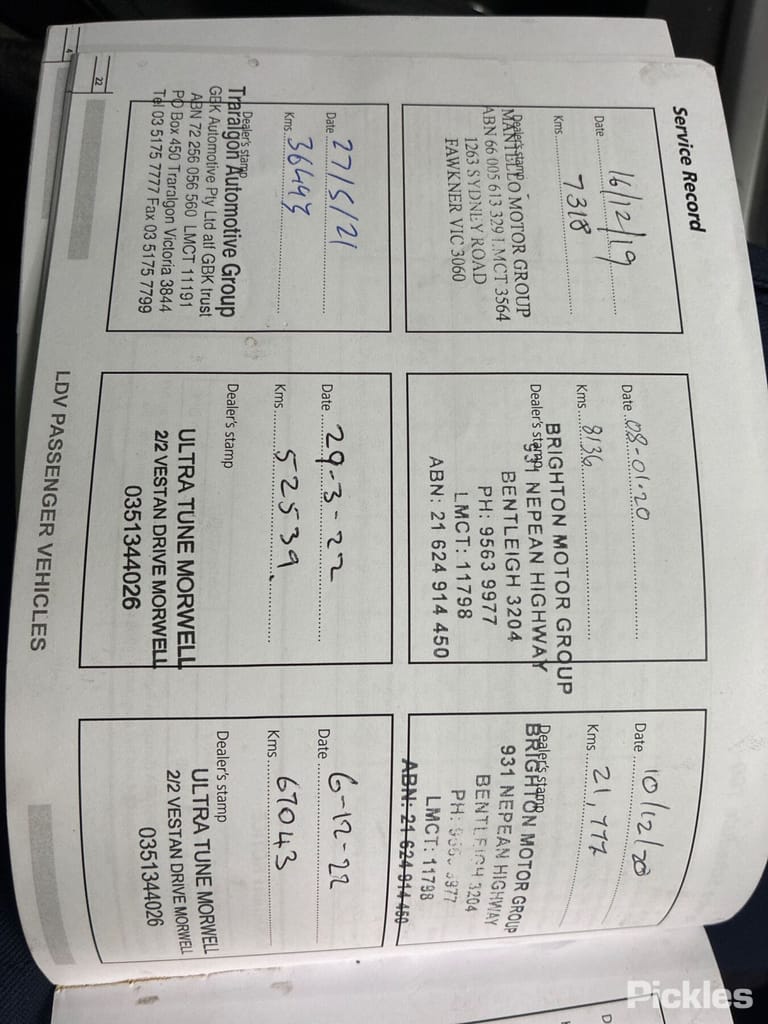 Service Record
Date 16/12/19
Kms. 7318
Dealer's stamp
MANTELLO MOTOR GROUP
ABN 66 005 613 329 LMCT 3564
1263 SYDNEY ROAD
FAWKNER VIC 3060
Date 08-01-20
Kms 8136
Dealer's stamp
BRIGHTON MOTOR GROUP
931 NEPEAN HIGHWAY
BENTLEIGH 3204
PH: 9563 9977
LMCT: 11798
ABN: 21 624 914 450
Date 10/12/20
Kms. 21,777
Dealer's stamp
BRIGHTON MOTOR GROUP
931 NEPEAN HIGHWAY
BENTLEIGH 3204
PH:
LMCT: 11798
ABN: 21 624 914 450
Date 27/5/21
Kms 36493
Dealer's stamp
Traralgon Automotive Group
GBK Automotive Pty Ltd atf GBK trust
ABN 72 256 056 560 LMCT 11191
PO Box 450 Traralgon Victoria 3844
Tel 03 5175 7777 Fax 03 5175 7799
Date 29-3-22
Kms. 52539
Dealer's stamp
ULTRA TUNE MORWELL
2/2 VESTAN DRIVE MORWELL
0351344026
Date 6-12-22
Kms. 67043
Dealer's stamp
ULTRA TUNE MORWELL
2/2 VESTAN DRIVE MORWELL
0351344026
22
LDV PASSENGER VEHICLES
Pickles